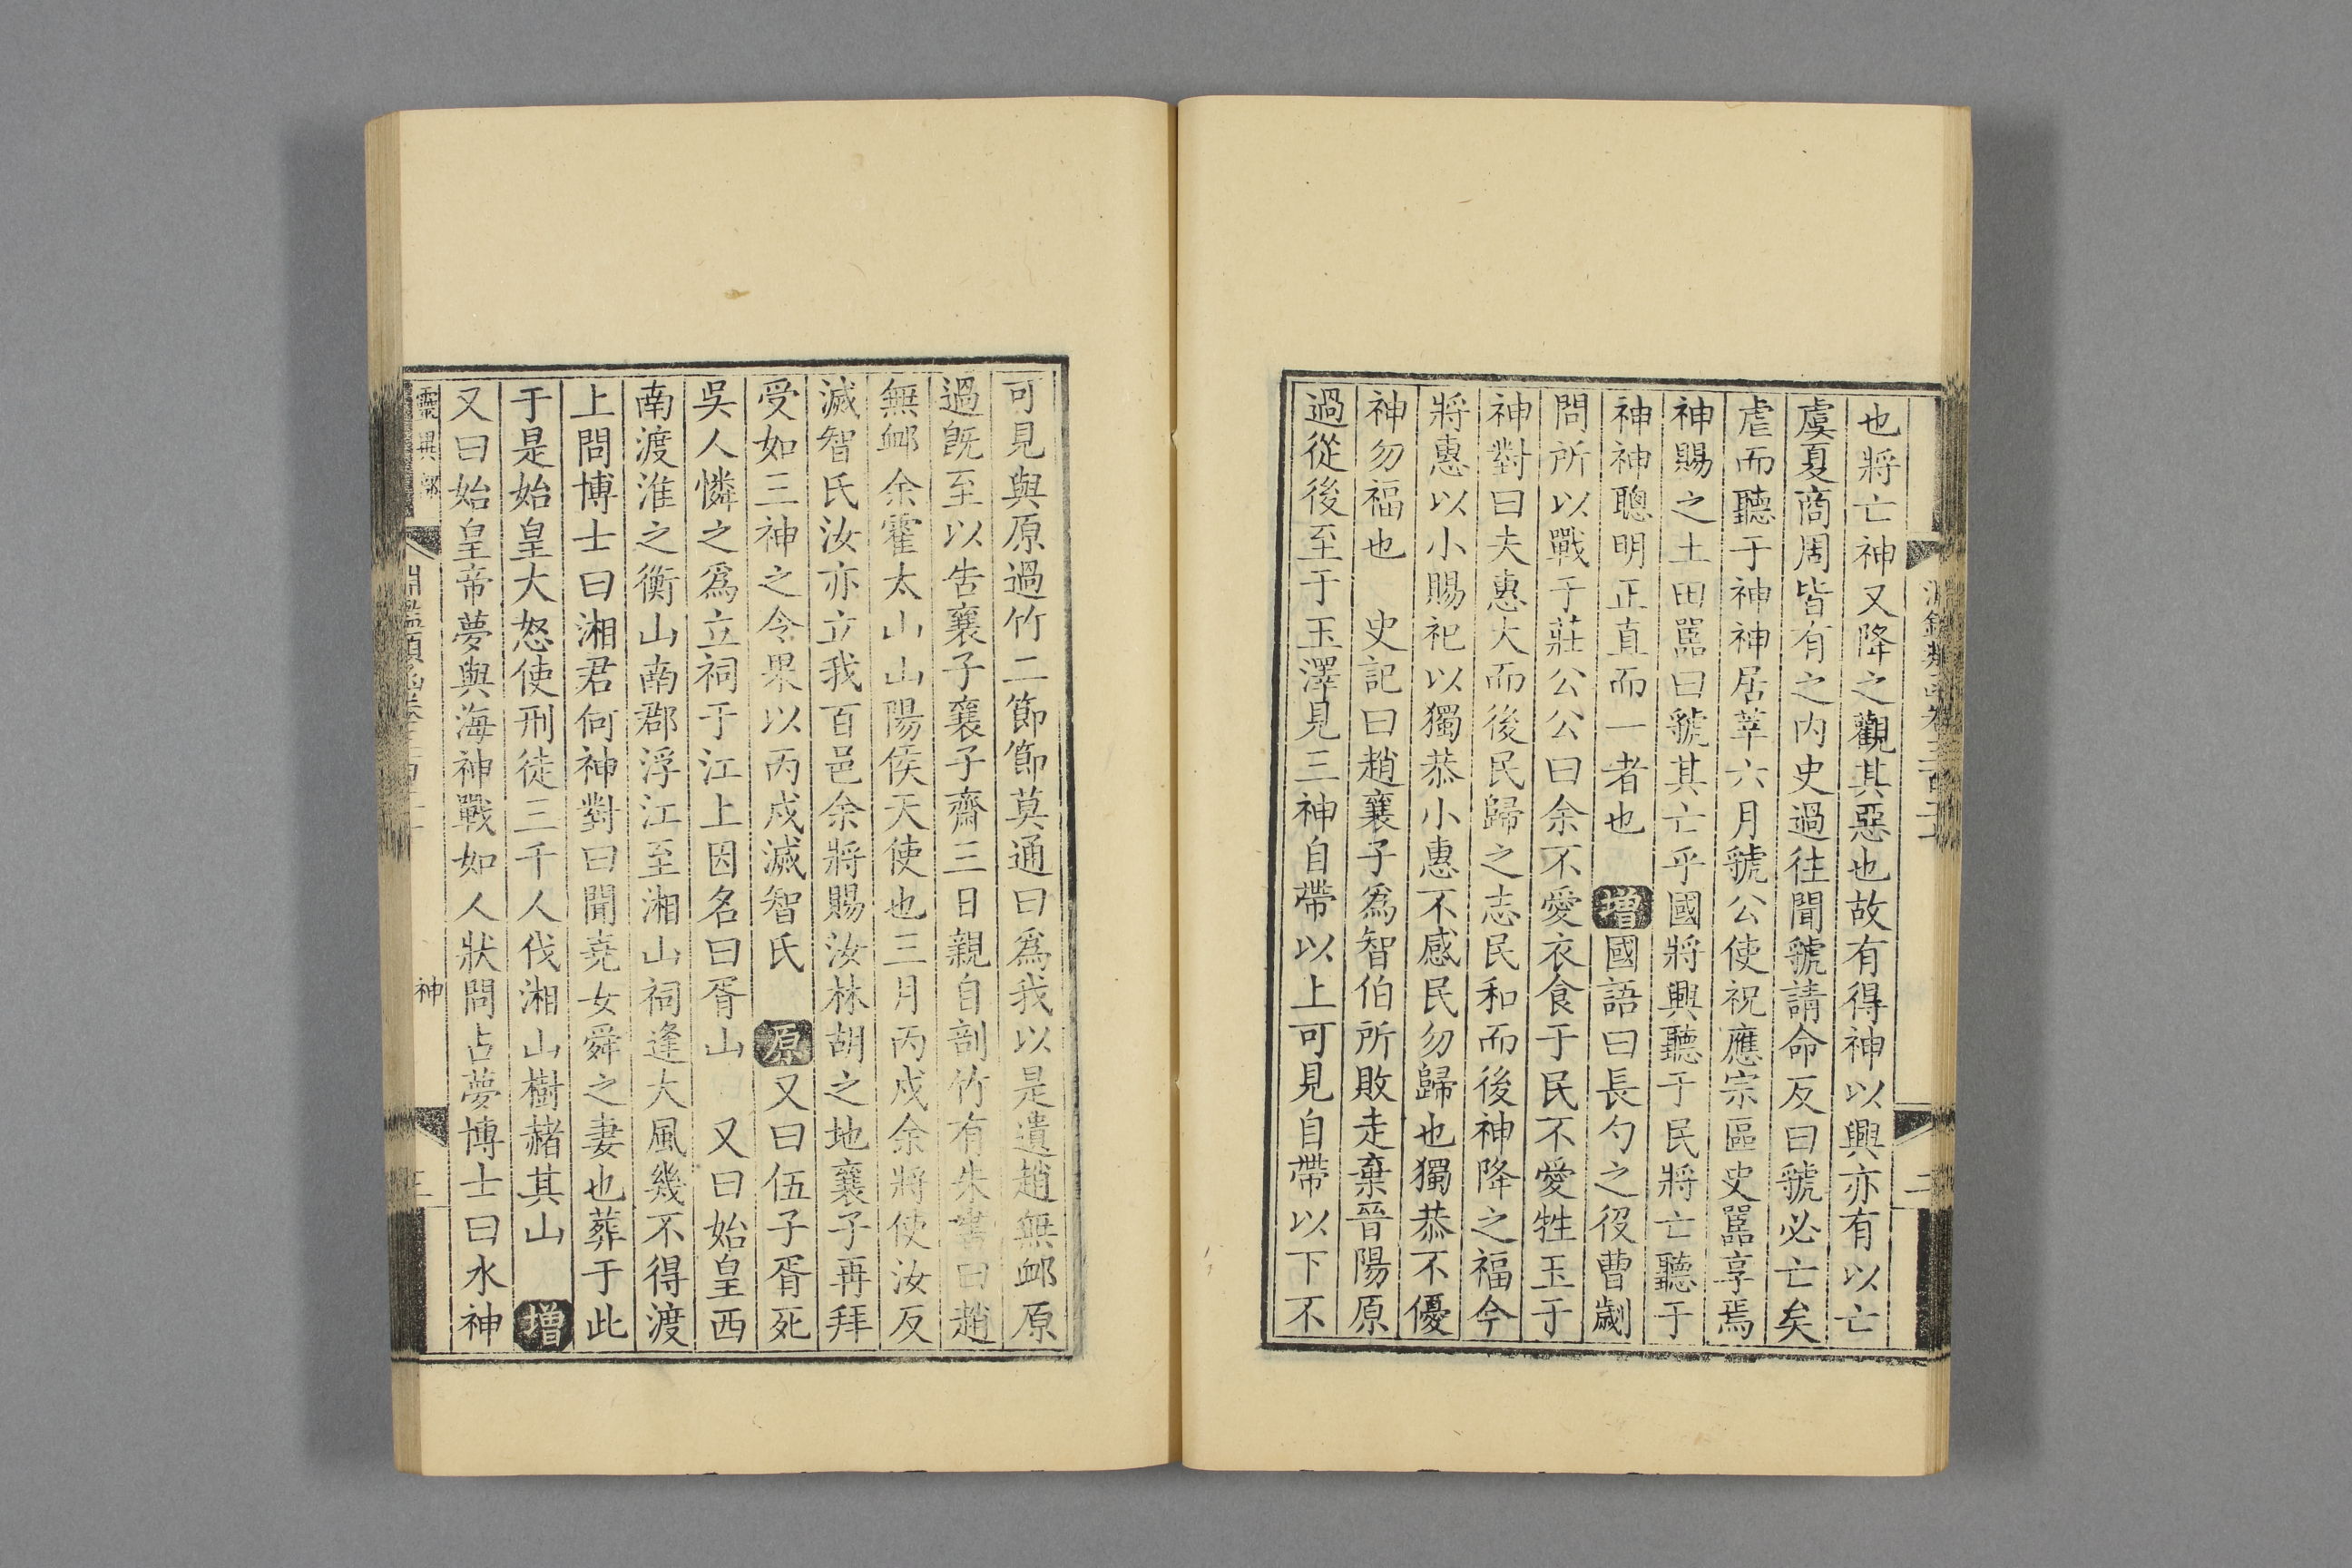 也將亡神又降之觀其惡也故有得神以興亦有以亡
虞夏商周皆有之內史過往聞虢請命反曰虢必亡矣
虐而聽于神神居莘六月虢公使祝應宗區史嚚享焉
神賜之土田嚚曰虢其亡乎國將興聽于民將亡聽于
神神聰明正直而一者也 增國語曰長勺之役曹劌
問所以戰于莊公公曰余不愛衣食于民不愛牲玉于
神對曰夫惠大而後民歸之志民和而後神降之福今
將惠以小賜祀以獨恭小惠不感民勿歸也獨恭不優
神勿福也 史記曰趙襄子爲智伯所敗走棄晉陽原
過從後至于玉澤見三神自帶以上可見自帶以下不
可見與原過竹二節節莫通曰爲我以是遺趙無卹原
過旣至以告襄子襄子齋三日親自剖竹有朱書曰趙
無卹余霍太山山陽侯天使也三月丙戌余將使汝反
滅智氏汝亦立我百邑余將賜汝林胡之地襄子再拜
受如三神之令果以丙戌滅智氏 原又曰伍子胥死
吳人憐之爲立祠于江上因名曰胥山 又曰始皇西
南渡淮之衡山南郡浮江至湘山祠逢大風幾不得渡
上問博士曰湘君何神對曰聞堯女舜之妻也葬于此
于是始皇大怒使刑徒三千人伐湘山樹赭其山 增
又曰始皇帝夢與海神戰如人狀問占夢博士曰水神
靈異部
神
三